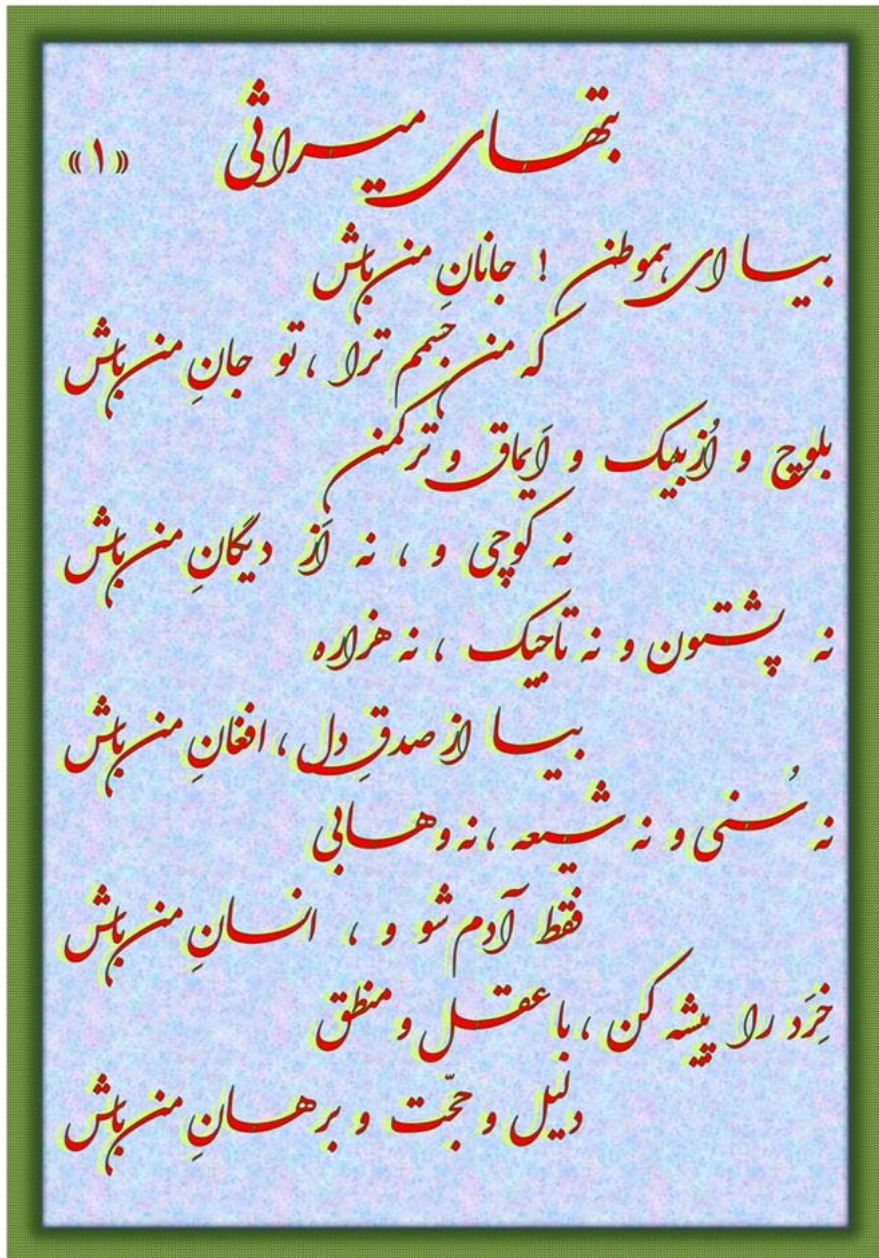 بتهای میراثی «۱»
بیا ای هموطن ! جانانِ من باش
که من جسمم ترا ، تو جانِ من باش
بلوچ و اُزبیک و اَیماق و ترکمن
نه کوچی و ، نه اَز دیگانِ من باش
نه پشتون و نه تاجیک ، نه هزاره
بیا از صدقِ دل ، افغانِ من باش
نه سُنی و نه شیعه ، نه وهابی
فقط آدم شو و ، انسانِ من باش
خِرَد را پیشه کن ، با عقل و منطق
دلیل و حجّت و برهانِ من باش